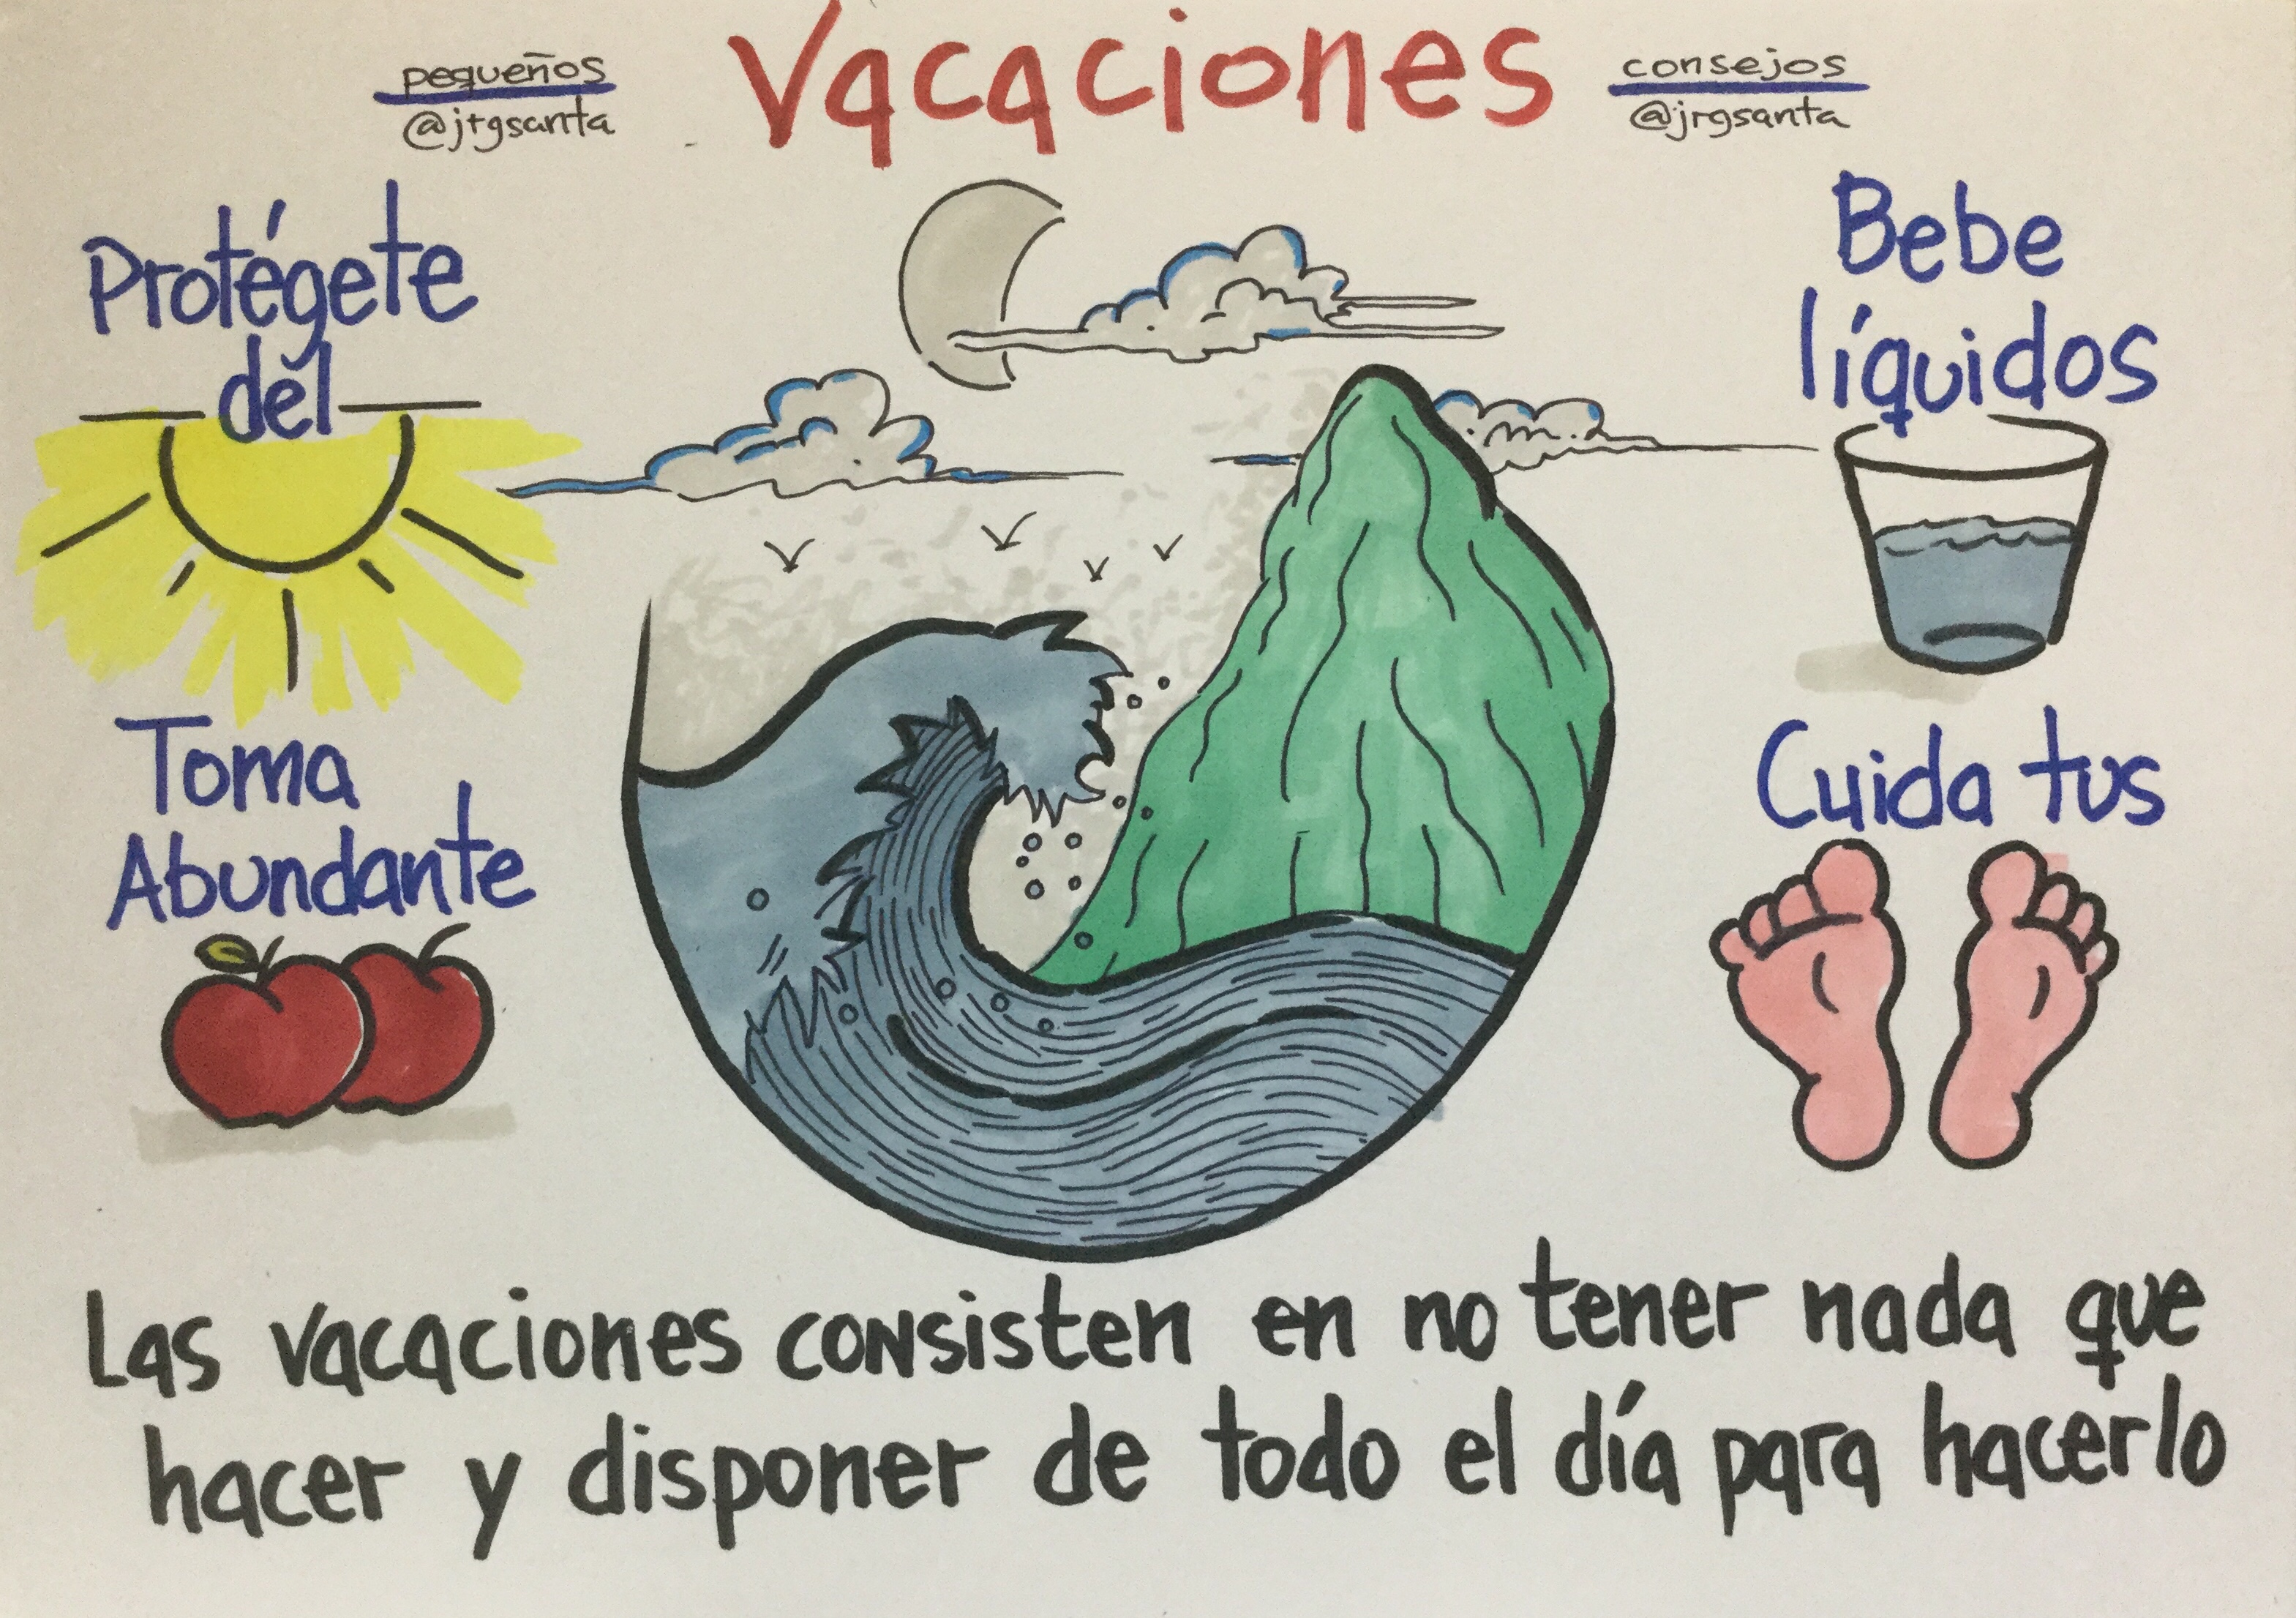 Vacaciones
pequeños
@jrgsanta
consejos
@jrgsanta
Protégete
del
Toma
Abundante
Bebe
líquidos
Cuida tus
Las vacaciones consisten en no tener nada que
hacer y disponer de todo el día para hacerlo